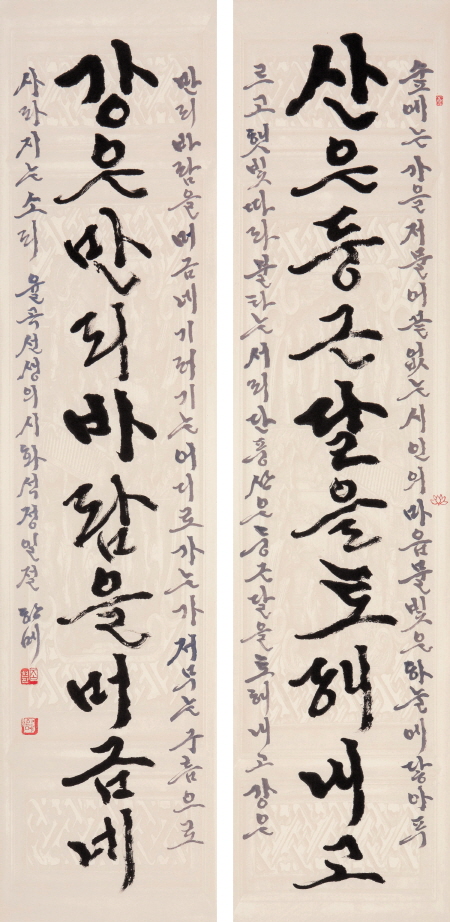 숲에는 가을 저물어 끝없는 시인의 마음 물빛은 하늘에 닿아 푸
산은 둥근 달을 토해 내고
르고 햇빛 따라 불타는 서리 단풍 산은 둥근 달을 토해 내고 강은
만리 바람을 머금네 기러기는 어디로 가는가 저무는 구름으로
강은 만리 바람을 머금네
사라지는 소리 율곡선생의 시 화석정 일절